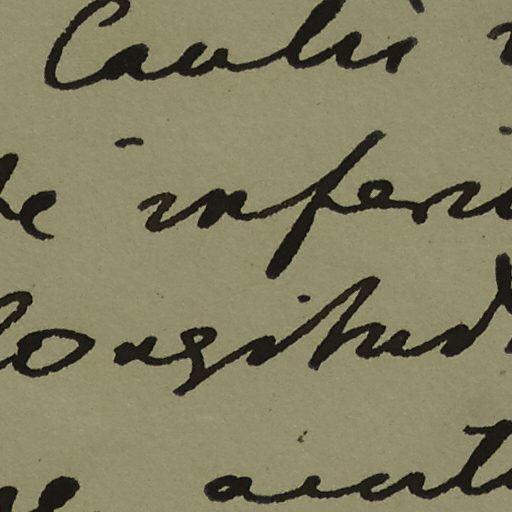 Caulis
inferi
longitud
acut